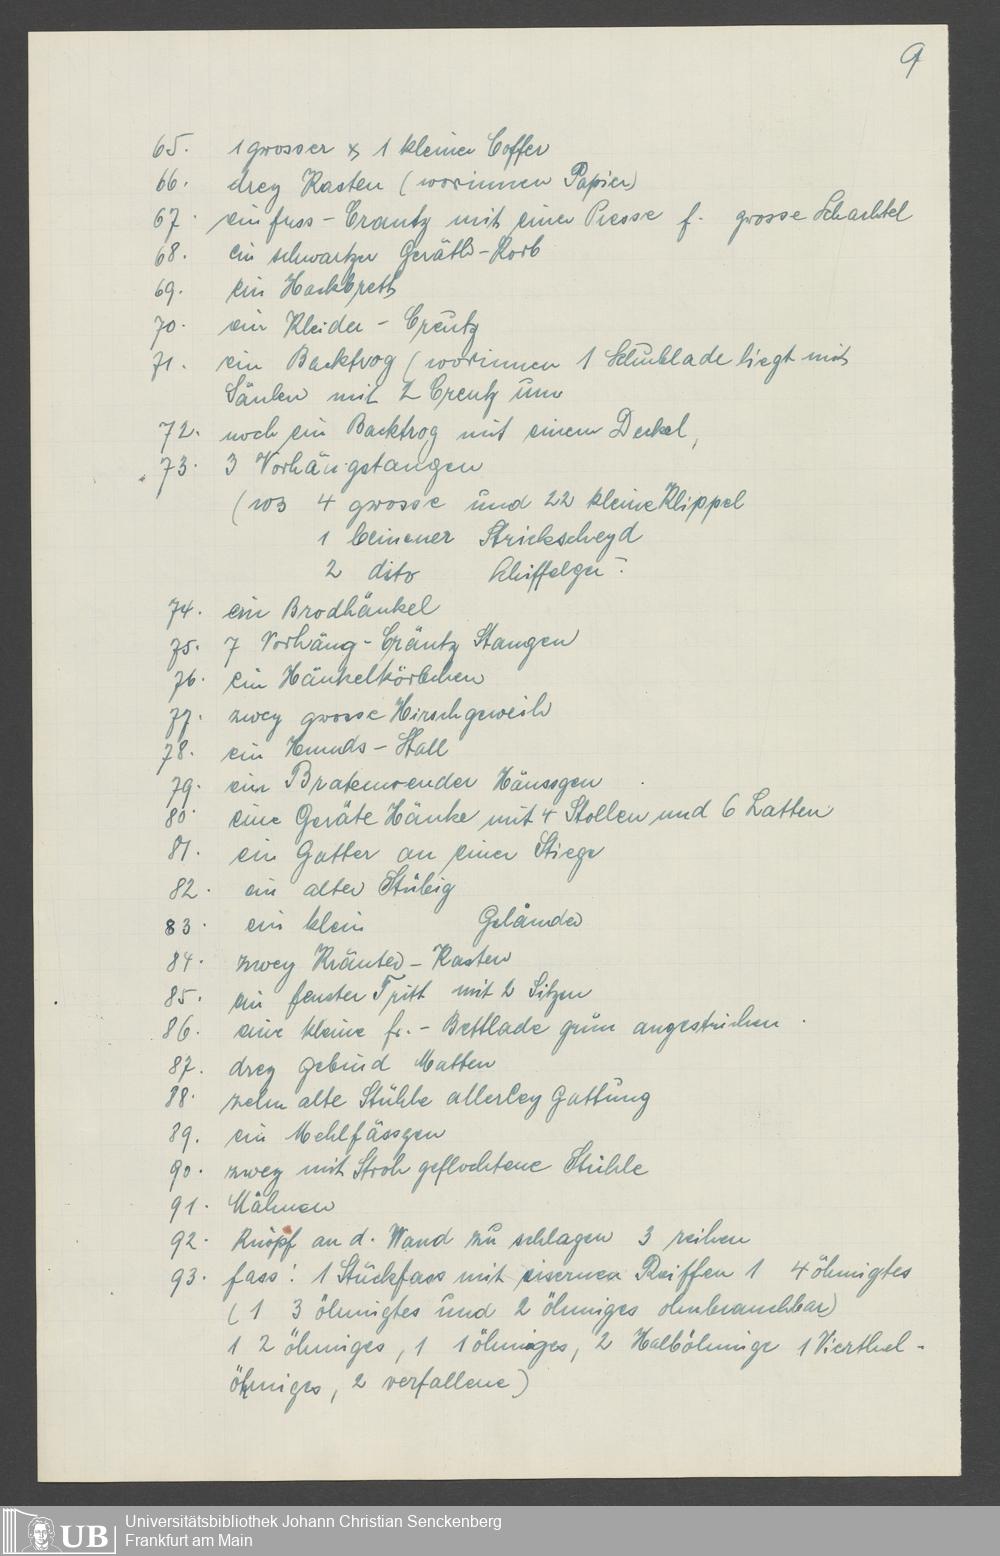 9
65. 1 grosser & 1 kleiner Coffer
66. drey Kasten (worinnen Papier)
67. ein fuss-Crantz mit einer Presse f. grosse Schachtel
68. ein schwartzer Geräth-Korb
69. ein Hackbreth
70. ein Kleider-Creutz
71. ein Backtrog (worinnen 1 Schublade liegt mit
Säulen mit 2 Creutz
72. noch ein Backtrog mit einem Deckel,
73. 3 Vorhängstangen
(wo 4 grosse und 22 kleine Klippel
1 beinener Strickscheyd
2 dito
74. ein Brodhänkel
75. 7 Vorhäng-Cräntz Stangen
76. ein Hänkelkörbchen
77. zwey grosse Hirschgeweih
78. ein Hunds-Stall
79. ein Bratenwender Häussgen
80. eine Geräte Hänke mit 4 Stollen und 6 Latten
81. ein Gatter an einer Stiege
82. ein alter Stübig
83. ein klein Geländer
84. zwey Kräuter-Kasten
85. ein fenster Tritt mit 2 Sitzen
86. eine kleine fr.-Bettlade grün angestrichen.
87. drey Gebund Matten
88. zehn alte Stühle allerley Gattung
89. ein Mehlfässgen
90. zwey mit Stroh geflochtene Stühle
91. Mähnen
92. Knöpf an d. Wand zu schlagen 3 reihen
93. fass: 1 Stückfass mit eisernen Reiffen 1 4 öhmigtes
(1 3 öhmigtes und 2 öhmiges ohnbrauchbar)
1 2 öhmiges, 1 1 öhmiges, 2 Halböhmige 1 Vierthel-
öhmiges, 2 verfallene)
UB Universitätsbibliothek Johann Christian Senckenberg
Frankfurt am Main